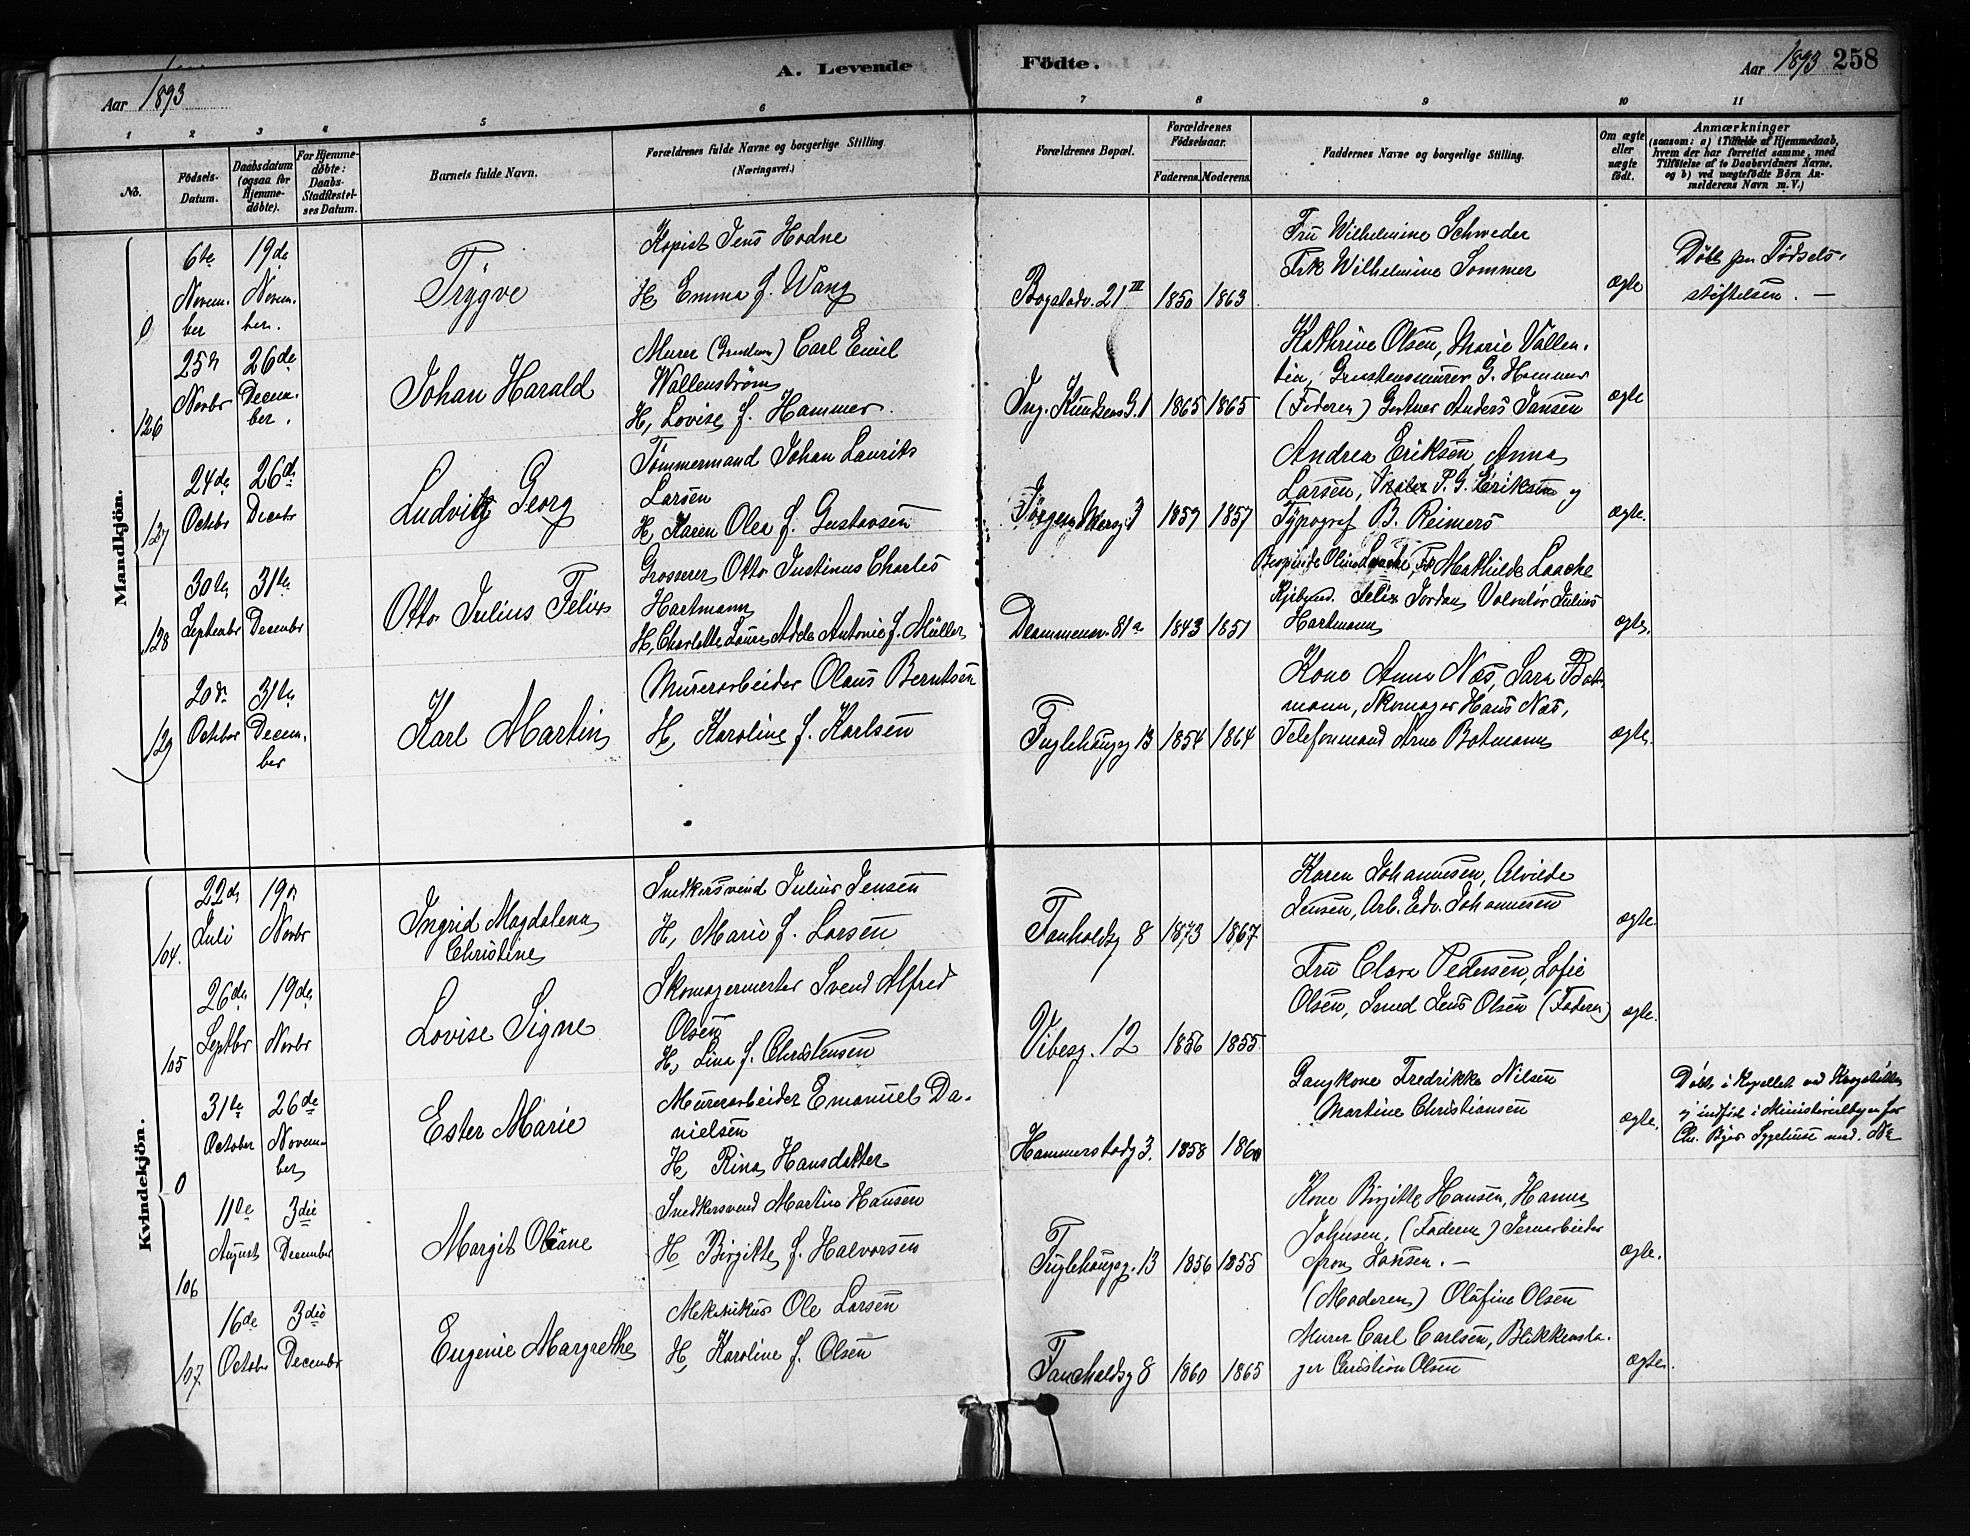 A. Levende
Födte.
Aar 1893
Aar 1893
258
1 2 3 4 5 6 7 8 9 10 11
No.
Födsels-
Datum.
Daabsdatum
(ogsaa for
Hjemme-
döbte).
For Hjemme-
döbte:
Daabs-
Stadfæstel-
ses Datum.
Barnets fulde Navn.
Forældrenes fulde Navne og borgerlige Stilling.
(Næringsvei.)
Forældrenes Bopæl.
Forældrenes
Födselsaar.
Faderens. Moderens.
Faddernes Navne og borgerlige Stilling.
Om ægte
eller
uægte
födt.
Anmærkninger
(saasom: a) i Tilfælde af Hjemmedaab,
hvem der har forrettet samme, med
Tilföielse af to Daabsvidners Navne,
og b) ved uægtefödte Börn An-
melderens Navn m. V.)
Mandkjön.
0
6te
Novem-
ber
19de
Novem-
ber.
Trygve
Kopist Jens Hodne
H. Emma f. Wang
Bogstadv. 21 III
1850 1863
Fru Wilhelmine Schweder
Frk Wilhelmine Sommer
ægte
Döbt paa Födsels-
stiftelsen. —
126
25de
Novbr
26de
Decem-
ber.
Johan Harald
Murer Carl Emil
Wallenström
H. Lovise f. Hammer.
Ing. Knudsens G. 1
1865 1865
Kathrine Olsen, Marie Vallen-
tin, Grustensmurer G. Hammer
(Faderen) Gartner Anders Jansen
ægte
127
24de
Octbr
26de
Decbr
Ludvig Georg
Tömmermand Johan Laurits
Larsen
H. Karen Olea f. Gustavsen
1859 1857
Andrea Eriksen, Anna
Larsen, P. G. Eriksen og
Typograf B. Reimers
ægte.
128
30te
Septembr
31te
Decembr
Otto Julius Felix
Grosserer Otto Justinus Charles
Hartmann
H. Charlotte Laura Adele Antonie f. Müller
Drammensv. 81a
1843 1851
Mathilde Laache
Felix Jordan, Volontör Julius
Hartmann
ægte.
129
20de
October
31te
Decem-
ber
Karl Martin
Murerarbeider Olaus Berntsen
H. Karoline f. Karlsen
Fuglehaugg 13
1854 1864
Kone Anna Næs, Sara Bot-
mann, Skomager Hans Næs,
Telefonmand Arne Botmann
ægte.
Kvindekjön.
104.
22de
Juli
19de
Novbr
Ingrid Magdalena
Christine
Snedkersvend Julius Jensen
H. Marie f. Larsen
Fauholdsg 8
1873 1867
Karen Johannesen, Alvilde
Jensen, Arb. Edv. Johannesen
ægte.
105
26de
Septbr
19de
Novbr
Lovise Signe
Skomagermester Svend Alfred
Olsen
H. Lina f. Christensen
Vibesg. 12
1856 1855
Fru Clara Pedersen, Sofie
Olsen, Smed Jens Olsen (Faderen)
ægte.
0
31te
October
26de
Novem-
ber
Ester Marie
Murerarbeider Emanuel Da-
nielsen
H. Rina Hansdatter
Hammerstadg 3.
1858 1860
Gangkone Fredrikke Nilsen
Martine Christiansen
ægte.
Döbt i Kapellet ved Krogstötten
og indfört i Ministerialbogen for
Chr. Byes Sygehuse
106
11te
August
3die
December
Margit Oleane
Snedkersvend Martin Hansen
H. Birgitte f. Halvorsen
Fuglehaugg. 13
1856 1855
Kone Birgitte Hansen, Hanna
Johnsen, (Faderen) Jernarbeider
Aron Larssen. —
ægte.
107
16de
October
3die
Decembr
Eugenie Margrethe
Mekanikus Ole Larsen
H. Karoline f. Olsen
Fauchaldsg 8
1860 1865
(Moderen) Olafine Olsen
Murer Carl Carlsen, Blikkensla-
ger Christian Olsen
ægte.